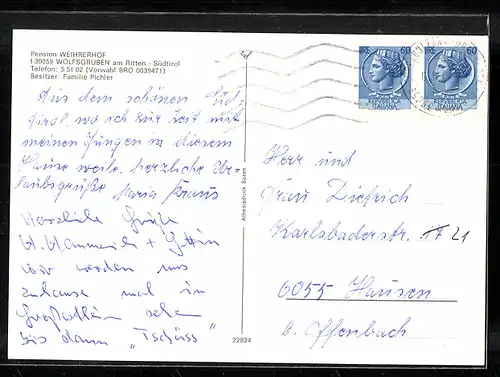 Pension WEIHRERHOF
I-39059 WOLFSGRUBEN am Ritten - Südtirol
Telefon: 5 51 02 (Vorwahl BRD 0039471)
Besitzer: Familie Pichler
Aus dem schönen Süd-
tirol, wo ich zur Zeit mit
meinen Jungen in diesem
Hause weile, herzliche Ur-
laubsgrüße Maria Kraus
Herzliche Grüße
+ Gattin
wir werden uns
zuhause mal in
sehen
bis dann "Tschüss"
Athesiadruck Bozen
22824
60
60
Herr und
Frau Dietrich
Karlsbaderstr. 17 21
6055 Hausen
b. Offenbach